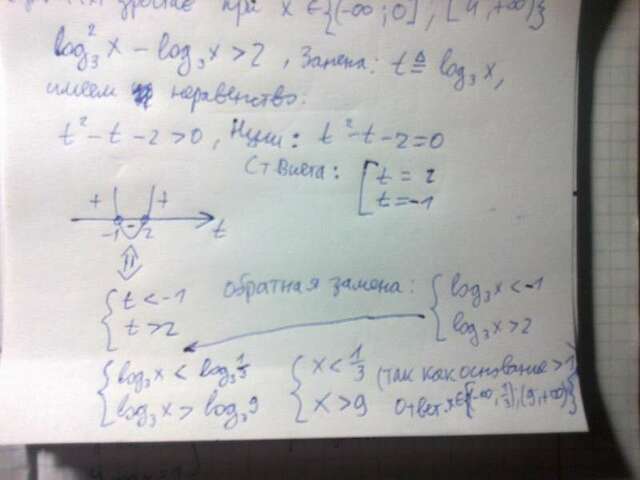 зростає при x ∈ {(-∞; 0], [4, +∞)}
log₃² x - log₃ x > 2, Замена: t ≜ log₃ x,
имеем неравенство:
t² - t - 2 > 0, Нули: t² - t - 2 = 0
Ст Виета: [ t = 2
t = -1
+ - +
-1 2 t
{ t < -1
t > 2
обратная замена: { log₃ x < -1
log₃ x > 2
{ log₃ x < log₃ 1/3
log₃ x > log₃ 9
{ x < 1/3 (так как основание > 1)
x > 9 Ответ: x ∈ {(-∞, 1/3), (9, +∞)}